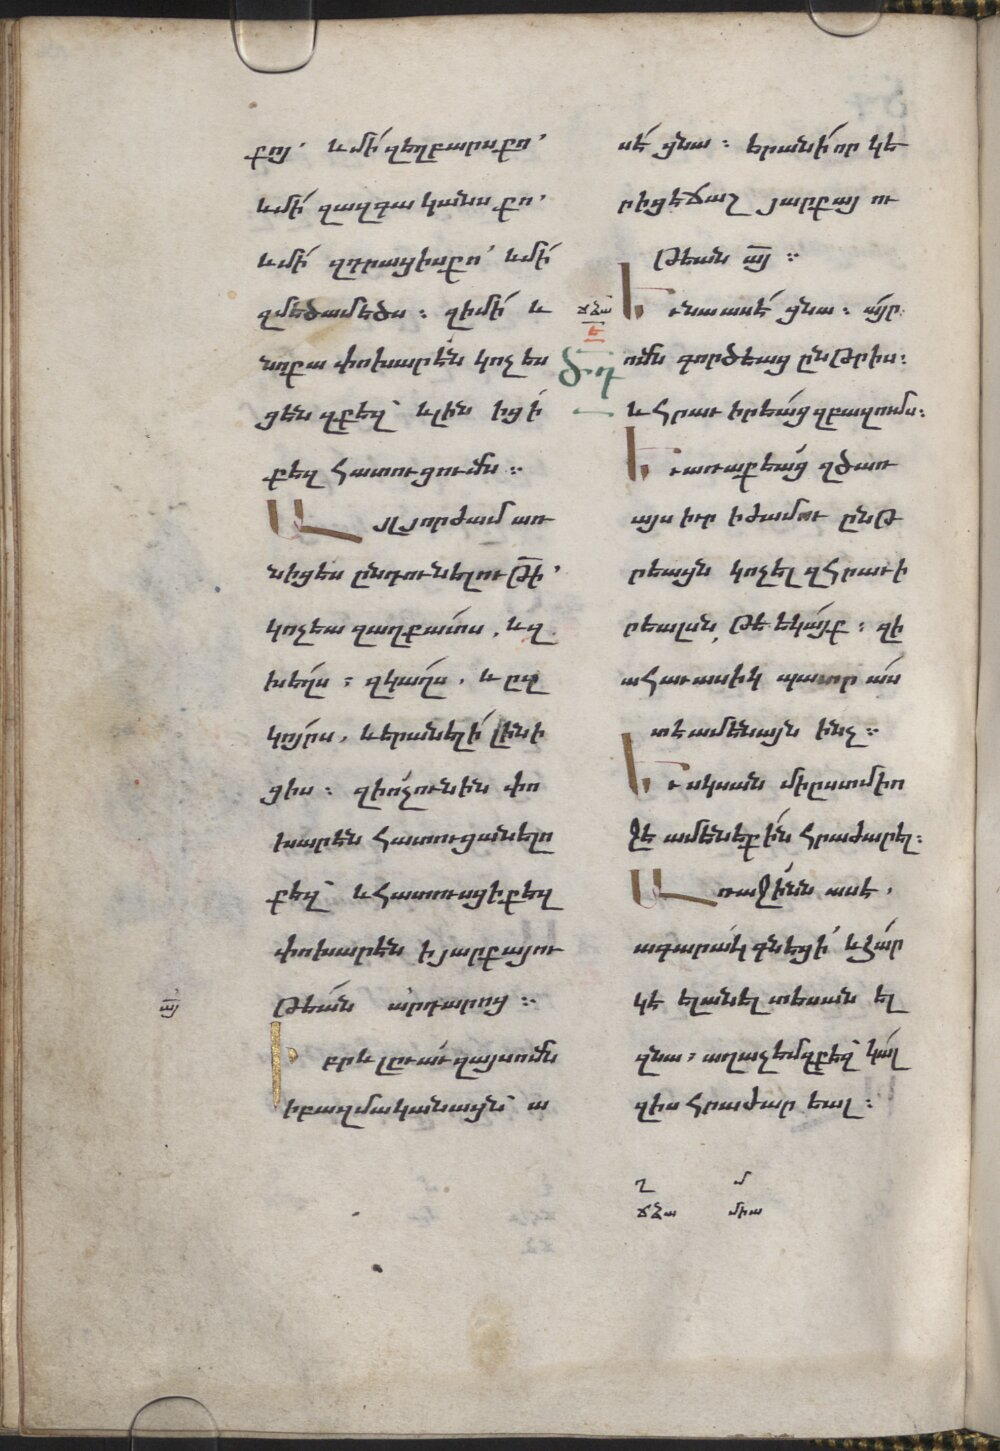 քոյ՝ և մի՛ զեղբարս քո՝
և մի՛ զազգականս քո՝
և մի՛ զդրացիս քո՝ և մի՛
զմեծամեծս ։ զի մի՛ և
նոքա փոխարէն կոչես
ցեն զքեզ՝ և լինիցի՛
քեզ հատուցումն ։
Այլ յորժամ առ
նիցես ընդունելութի՝
կոչեա զաղքա՛տս , և զ
խե՛ղս ։ զկա՛ղս , և զ
կո՛յրս , և երանելի՛ լինի
ցիս ։ զի ո՛չ ունին փո
խարէն հատուցանելո
քեզ՝ և հատուսցի քեզ
փոխարէն ի յարքայու
թե՛ան ա՛րդարոց ։
Իբրև լըւա՛ւ զայս ոմն
ի բազմականացն՝ ա
սէ՛ ցնա ։ երանի՛ որ կե
րիցէ ճաշ յարքայ ու
թեան այ ։
Եւ նա ասէ ցնա ։ այր
ոմն գործեաց ընթրիս ։
և հրաւիրեա՛ց զբազումս ։
Եւ առաքեա՛ց զծառ
այս իւր ի ժամու ընթ
րեացն կոչել զհրաւի
րեալսն , թէ եկա՛յք ։ զի
ահաւասիկ պատր աս
տ է ամենայն ինչ ։
Եւ սկսան միըստմիո
ջէ ամենեքի՛ն հրաժարել ։
Առաջի՛նն ասէ ,
ագարա՛կ գնեցի՛ և հա՛ր
կէ ելանել տեսան ել
զնա ։ աղաչեմ զքեզ՝ կա՛լ
զիս հրաժար եալ ։
այ
ճձա
ե
ծդ
ղ մ
ճձա միա